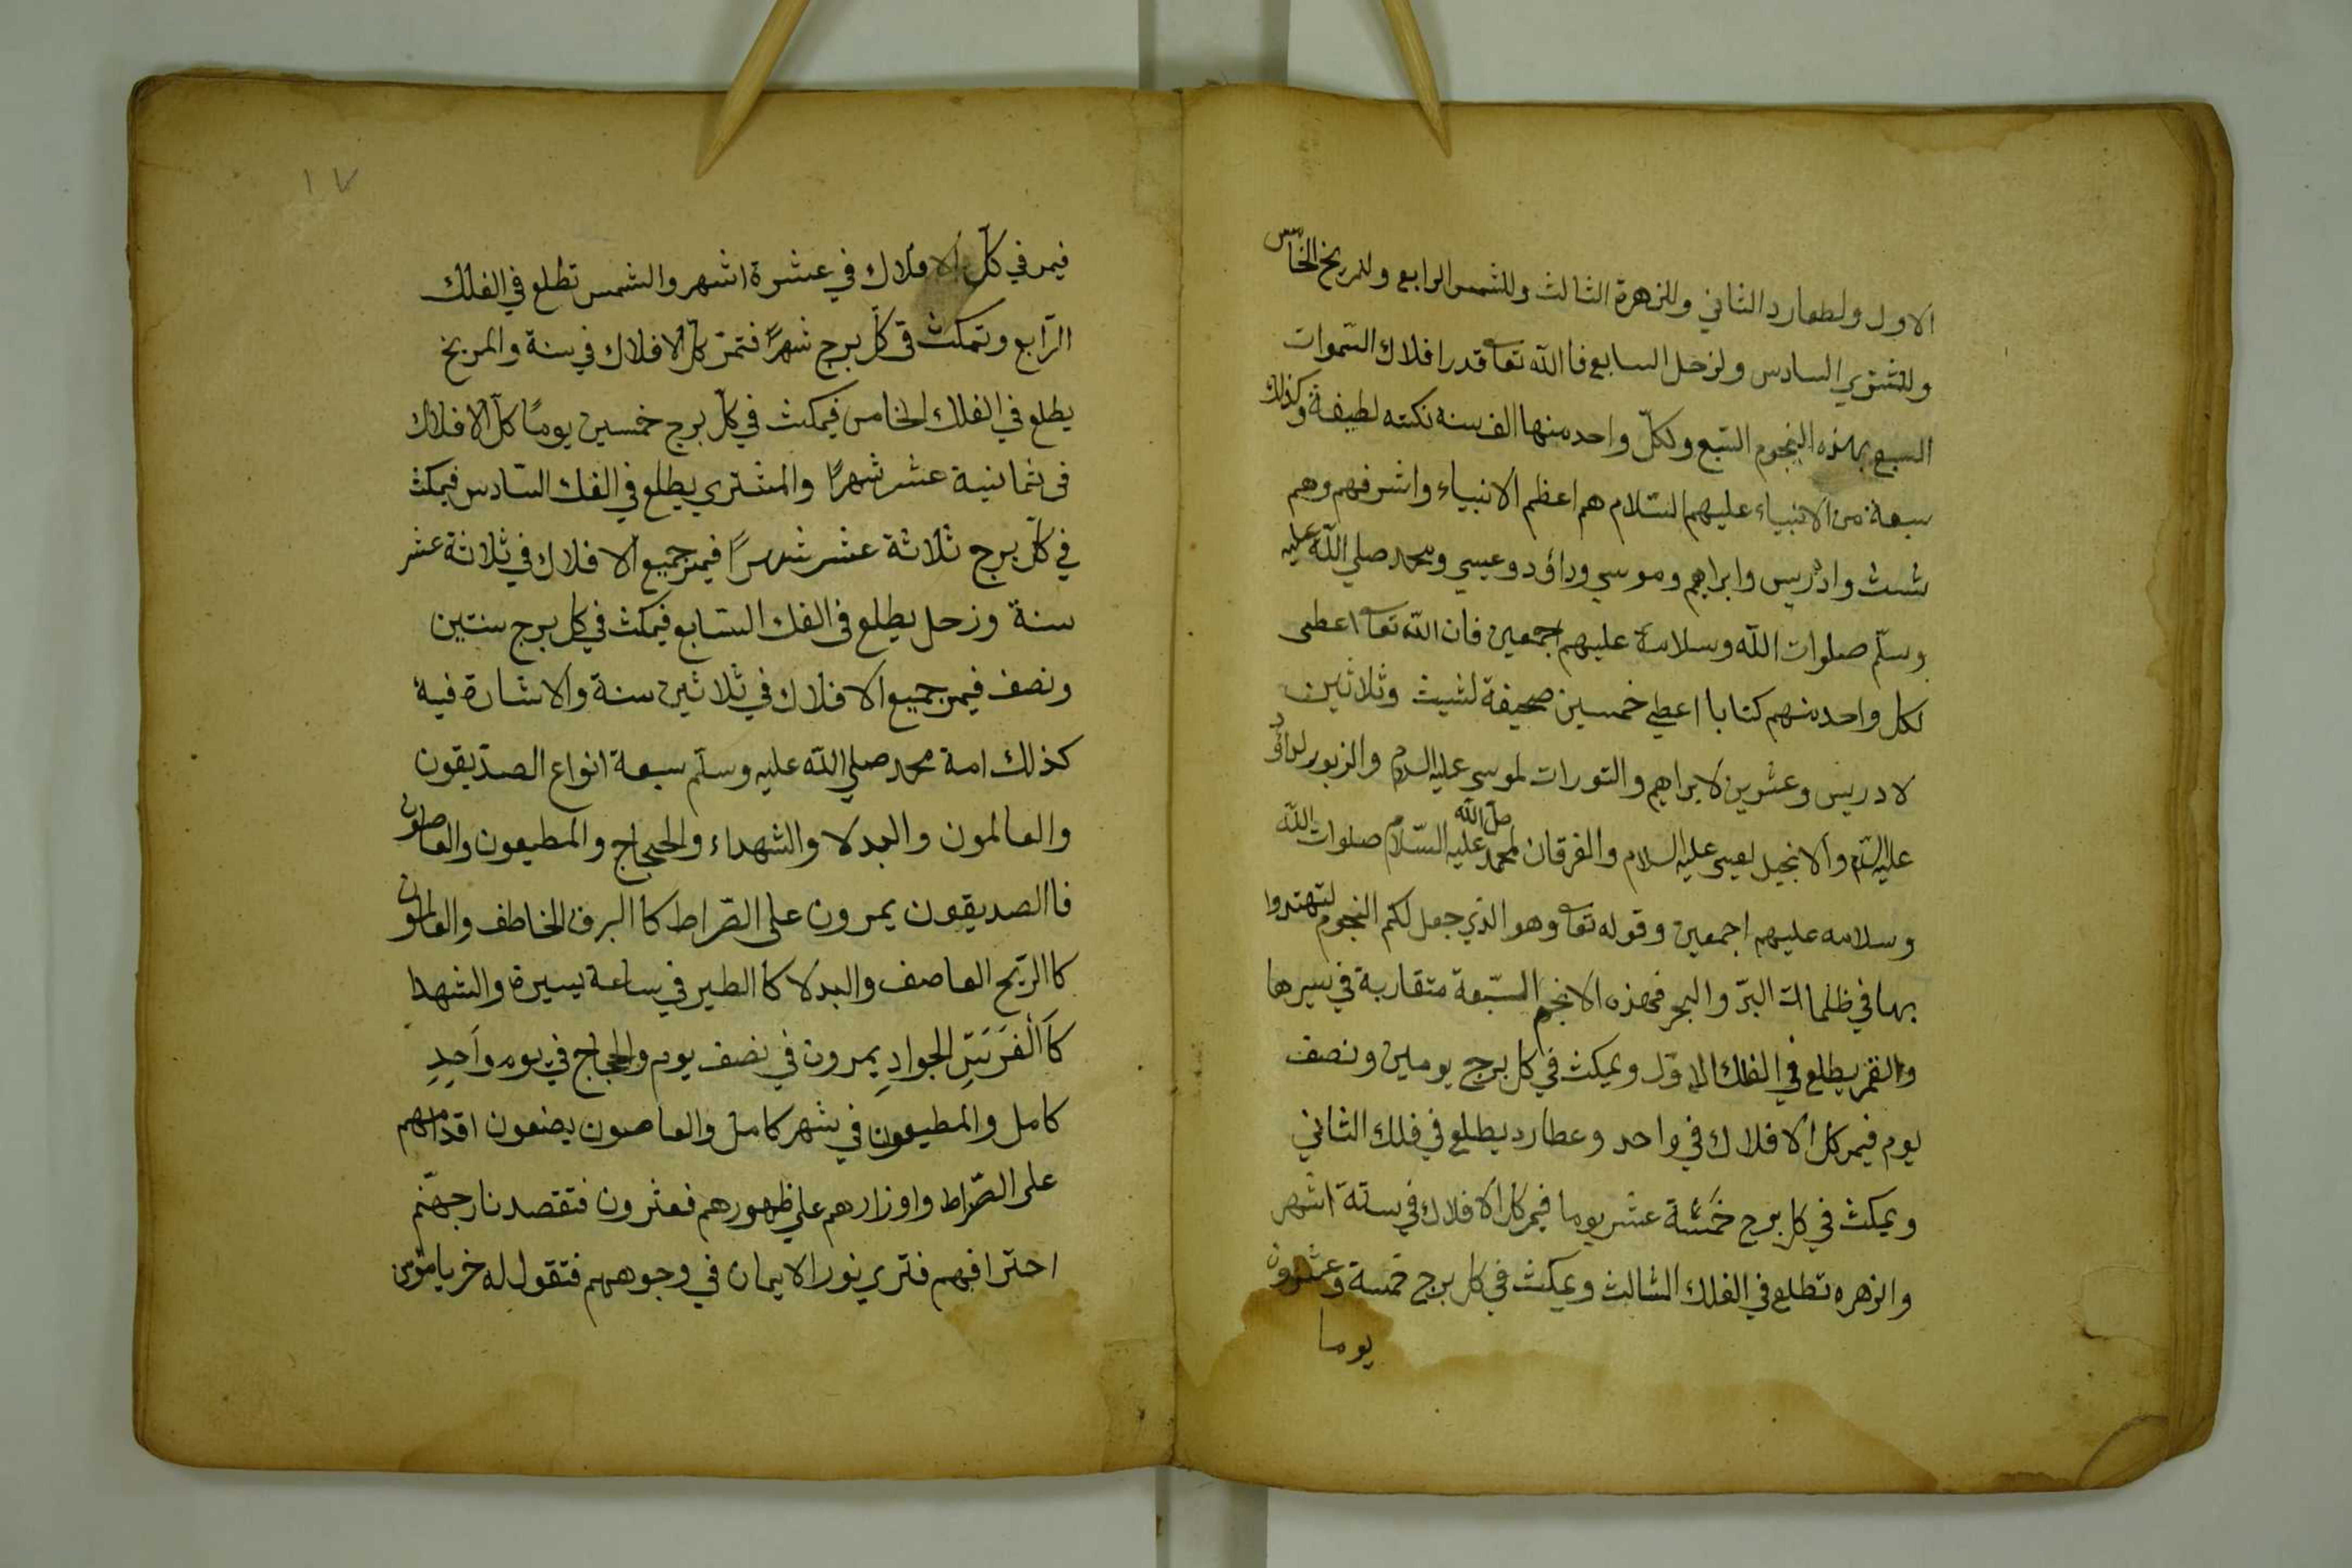 الاول ولطعارد الثاني وللزهرة الثالث وللشمس الرابع وللمريخ الخامس
وللمشتري السادس ولزحل السابع فاالله تعا قدر افلاك السّموات
السبع بهذه النجوم السّبع ولكلّ واحد منها الف سنه نكته لطيفة وكذلك
سبعة من الانبياء عليهم السّلام هم اعظم الانبياء واشرفهم وهم
شث وادريس وابراهم وموسي وداؤد وعيسي ومحمد صلي اللّه عليه
وسلّم صلوات اللّه وسلامه عليهم اجمعين فان اللّه تعا اعطى
لكل واحد منهم كتابا اعطي خمسين صحيفة لشيث وثلاثين
لادريس وعشرين لابراهيم والتورات لموسى عليه السلام والزبور لداؤد
عليه السّلام والانجيل لعيسى عليه السلام والفرقان لمحمد صلّ اللّه عليه السّلام صلوات اللّه
وسلامه عليهم اجمعين وقوله تعا وهو الذي جعل لكم النجوم لتهتدوا
بها في ظلمات البرّ والبحر فهذه الانجم السّبعة متقاربة في سيرها
والقمر يطلع في الفلك الاوّل ويمكث في كل برج يومين ونصف
يوم فيمر كل الافلاك في واحد وعطارد يطلع في فلك الثاني
ويمكث في كل برج خمسة عشر يوما فيمر كل الافلاك في ستة اشهر
والزهره تطلع في الفلك الثالث ويمكث في كل برج خمسة وعشرون
يوما
١٧
فيمر في كلّ الافلاك في عشرة اشهر والشمس تطلع في الفلك
الرّابع وتمكث في كلّ برج شهرًا فتمرّ كل الافلاك في سنة والمريخ
يطلع في الفلك الخامس فيمكث في كلّ برج خمسين يومًا كلّ الافلاك
في ثمانية عشر شهرًا والمشتري يطلع في الفلك السّادس فيمكث
في كلّ برج ثلاثة عشر شهرًا فيمر جميع الافلاك في ثلاثة عشر
سنة وزحل يطلع في الفلك السّابع فيمكث في كل برج سنتين
ونصف فيمر جميع الافلاك في ثلاثين سنة والاشارة فيه
كذلك امة محمد صلي اللّه عليه وسلّم سبعة انواع الصدّيقون
والعالمون والبدلا والشهداء والحجاج والمطيعون والعاصون
فاالصديقون يمرون على الصّراط كا البرق الخاطف والعالمون
كا الرّيح العاصف والبدلا كا الطير في ساعة يسيرة والشهدا
كَا الْفَرَسِ الجوادِ يمرون في نصف يوم والحجاج في يوم وَاحِدِ
كامل والمطيعون في شهر كامل والعاصون يضعون اقدامهم
على الصّراط واوزارهم علي ظهورهم فعثرون فتقصد نار جهنّم
احتراقهم فتري نور الايمان في وجوههم فتقول له خريا مؤمن